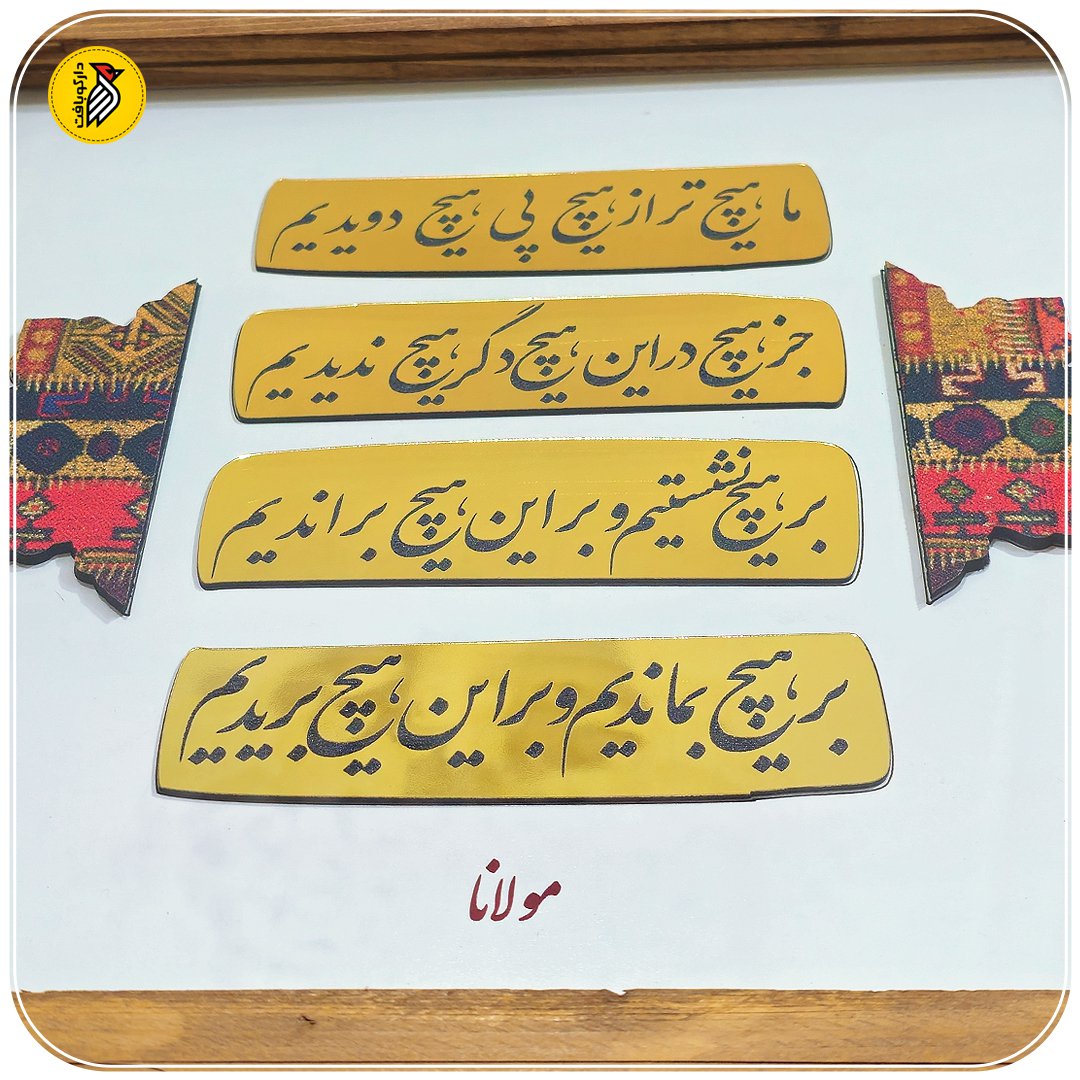 دارکوبافت
ما هیچ تر از هیچ پی هیچ دویدیم
جز هیچ در این هیچ دگر هیچ ندیدیم
بر هیچ نشستیم و بر این هیچ براندیم
بر هیچ بماندیم و بر این هیچ بریدیم
مولانا